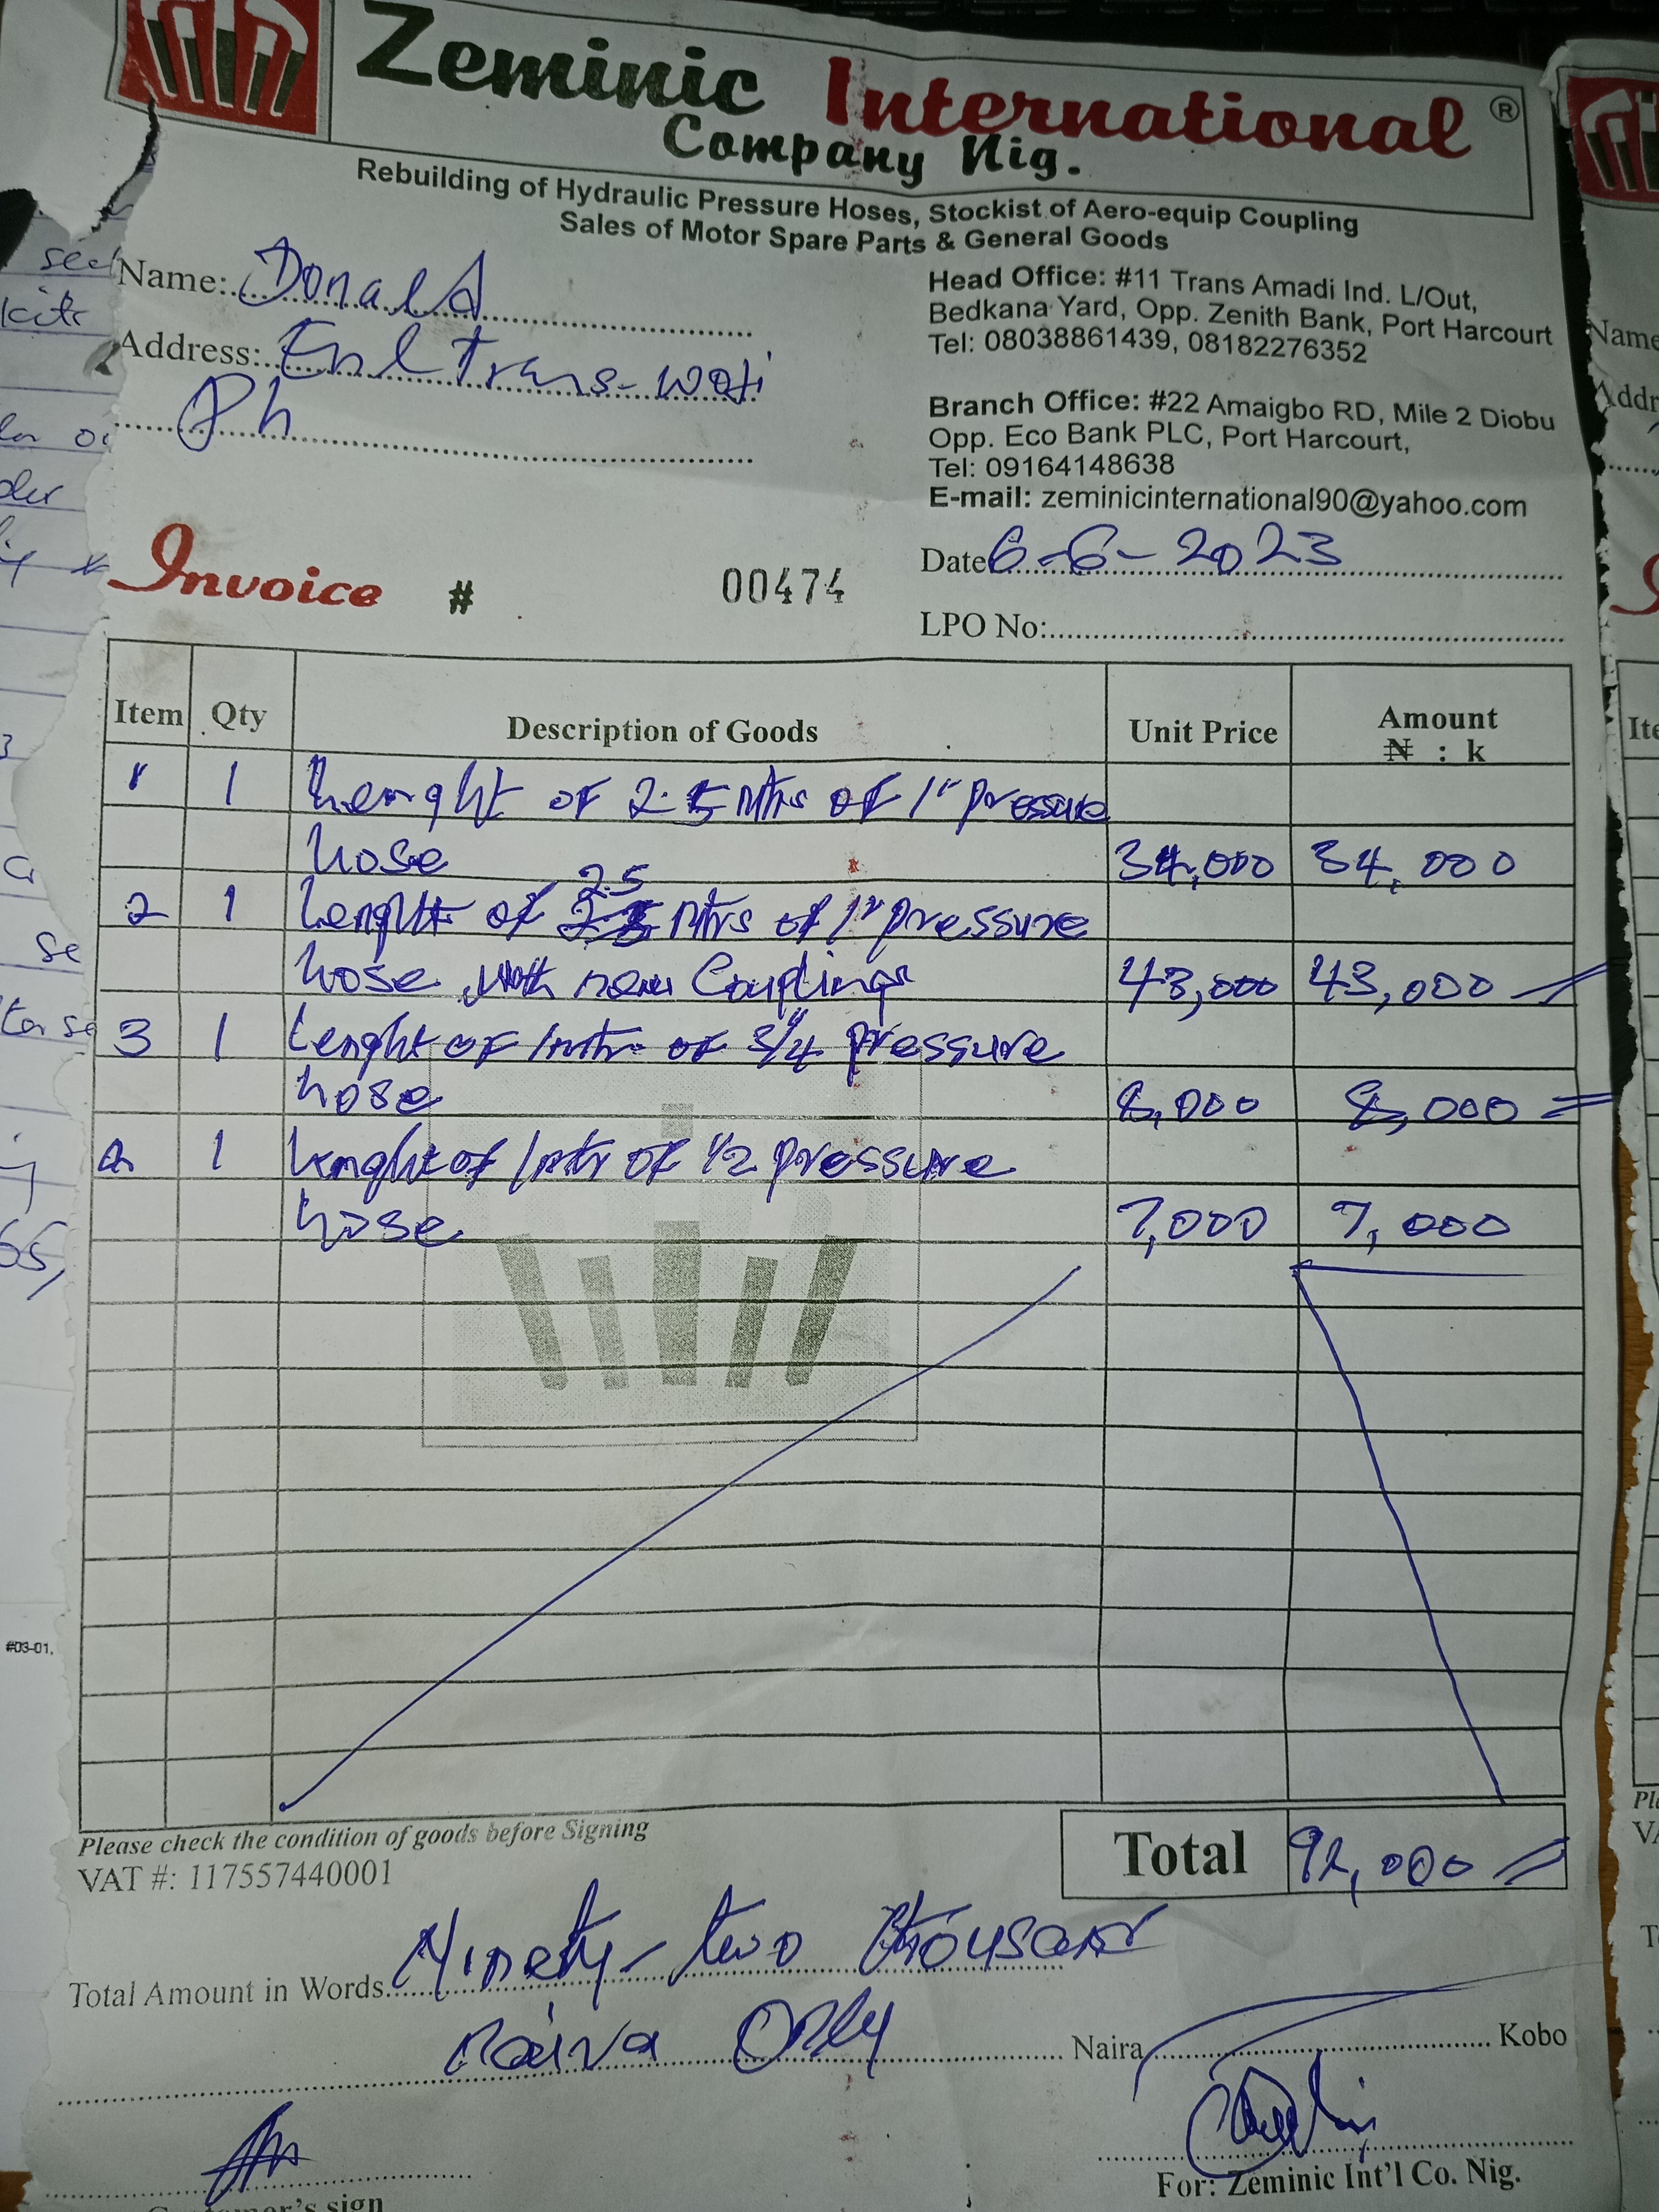 Zeminic International ®
Company Nig.
Rebuilding of Hydraulic Pressure Hoses, Stockist of Aero-equip Coupling
Sales of Motor Spare Parts & General Goods
Name: Donald
Address: Enl Trans-woji
Ph
Head Office: #11 Trans Amadi Ind. L/Out,
Bedkana Yard, Opp. Zenith Bank, Port Harcourt
Tel: 08038861439, 08182276352
Branch Office: #22 Amaigbo RD, Mile 2 Diobu
Opp. Eco Bank PLC, Port Harcourt,
Tel: 09164148638
E-mail: zeminicinternational90@yahoo.com
Date 6-6-2023
Invoice # 00474
LPO No:
Item Qty Description of Goods Unit Price Amount
₦ : k
1 1 Lenght of 2.5 Mtrs of 1" pressure
hose 34,000 34,000
2 1 Lenght of 2.5 Mtrs of 1" pressure
hose with new Couplings 43,000 43,000
3 1 Lenght of 1mtr of 3/4" pressure
hose 8,000 8,000
1 lenght of 1mtr of 1/2 pressure
hose 7,000 7,000
Please check the condition of goods before Signing
VAT #: 117557440001
Total 92,000
Total Amount in Words Ninety-two thousand
naira Only Naira Kobo
For: Zeminic Int'l Co. Nig.
sign
sea
kitr
se
65,
#03-01.
Name
Addr
Ite